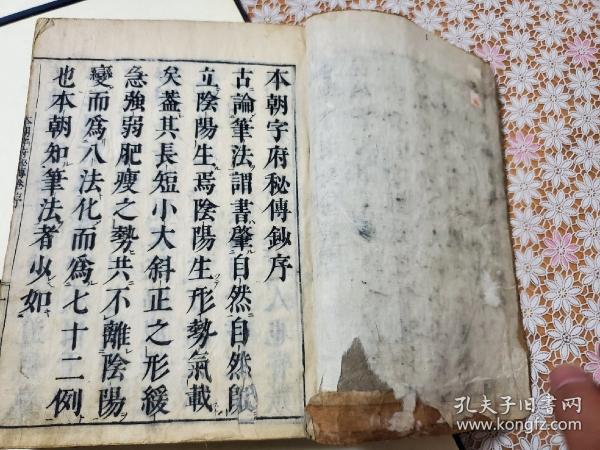 本朝字府秘傳鈔序
古論筆法謂書肇自然自然既
立陰陽生焉陰陽生形勢氣載
矣蓋其長短小大斜正之形緩
急強弱肥瘦之勢共不離陰陽
變而為八法化而為七十二例
也本朝知筆法者少如
孔夫子旧书网
www.kongfz.com